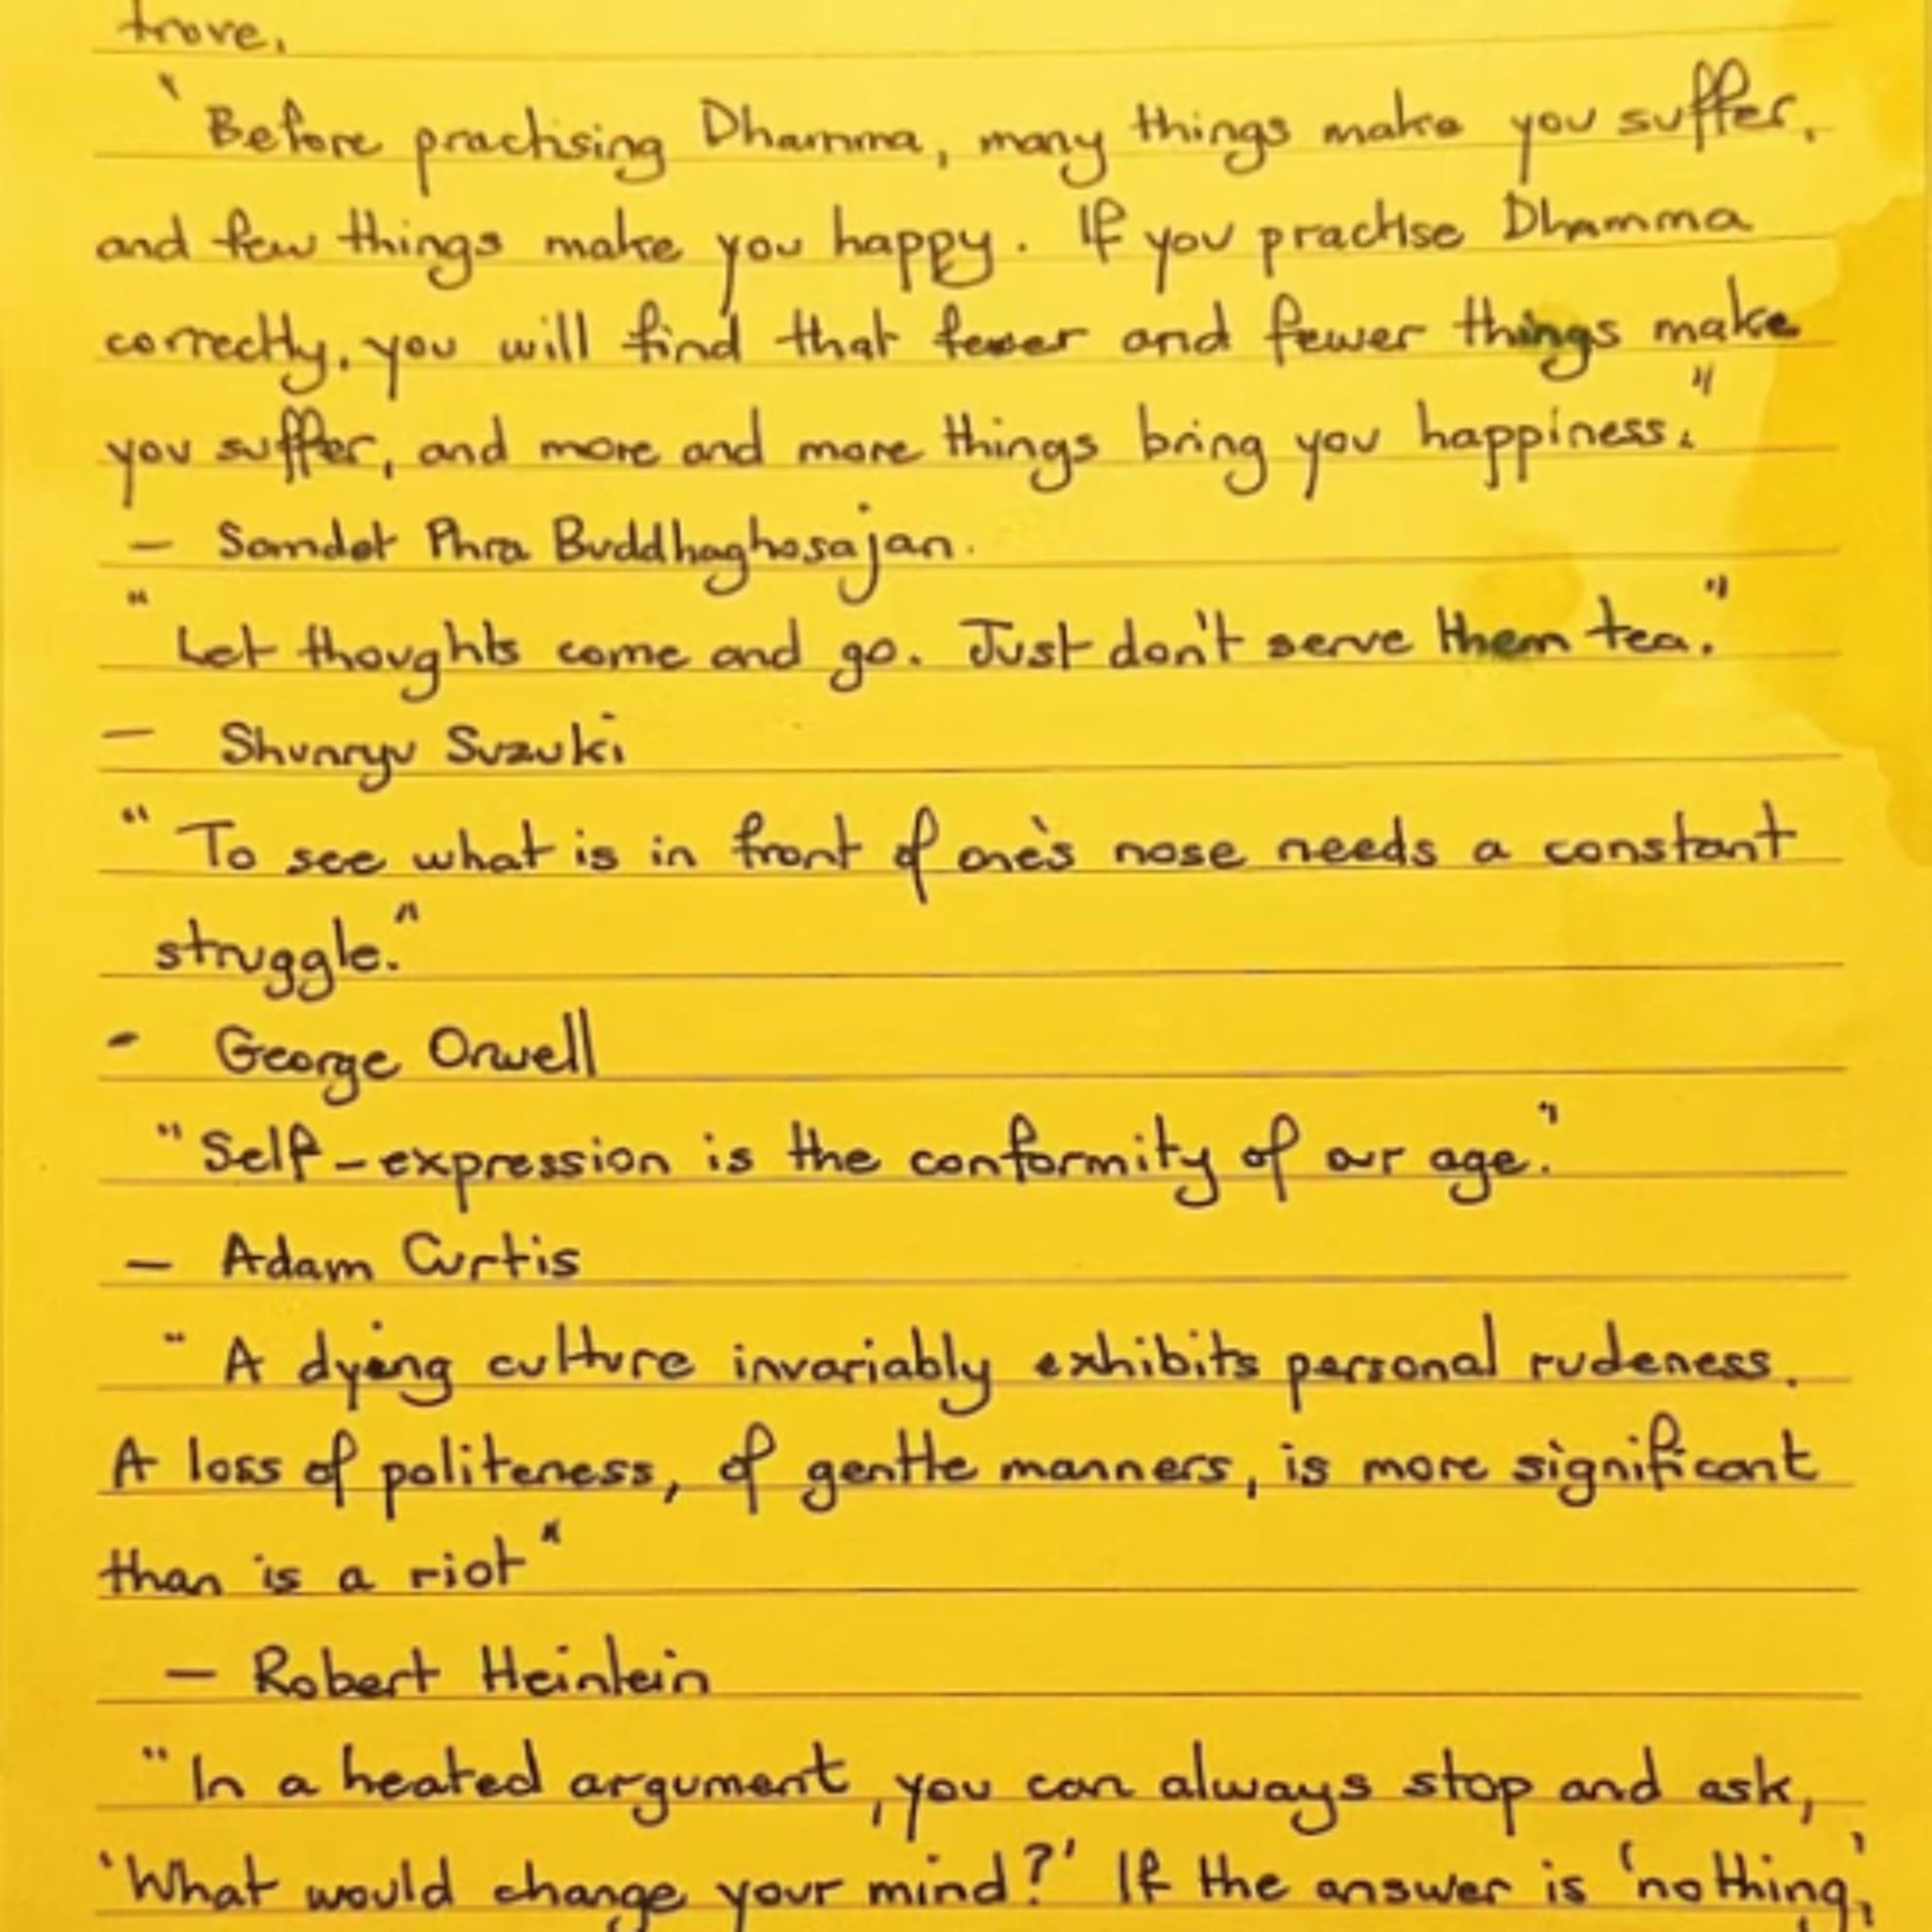 trove.
" Before practising Dhamma, many things make you suffer,
and few things make you happy. If you practise Dhamma
correctly, you will find that fewer and fewer things make
you suffer, and more and more things bring you happiness."
— Somdet Phra Buddhaghosajan.
" Let thoughts come and go. Just don't serve them tea."
— Shunryu Suzuki
" To see what is in front of one's nose needs a constant
struggle."
- George Orwell
" Self-expression is the conformity of our age."
— Adam Curtis
" A dying culture invariably exhibits personal rudeness.
A loss of politeness, of gentle manners, is more significant
than is a riot"
— Robert Heinlein
" In a heated argument, you can always stop and ask,
'What would change your mind?' If the answer is 'nothing,'